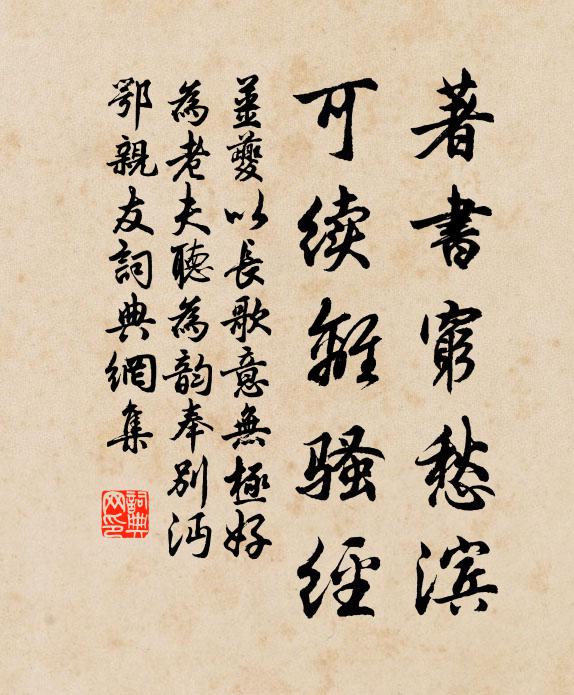 著書窮愁滨
可续離骚經
姜夔以長歌意無極好
為老夫聽為韵奉别沔
鄂親友詞典網集
詞典
网印